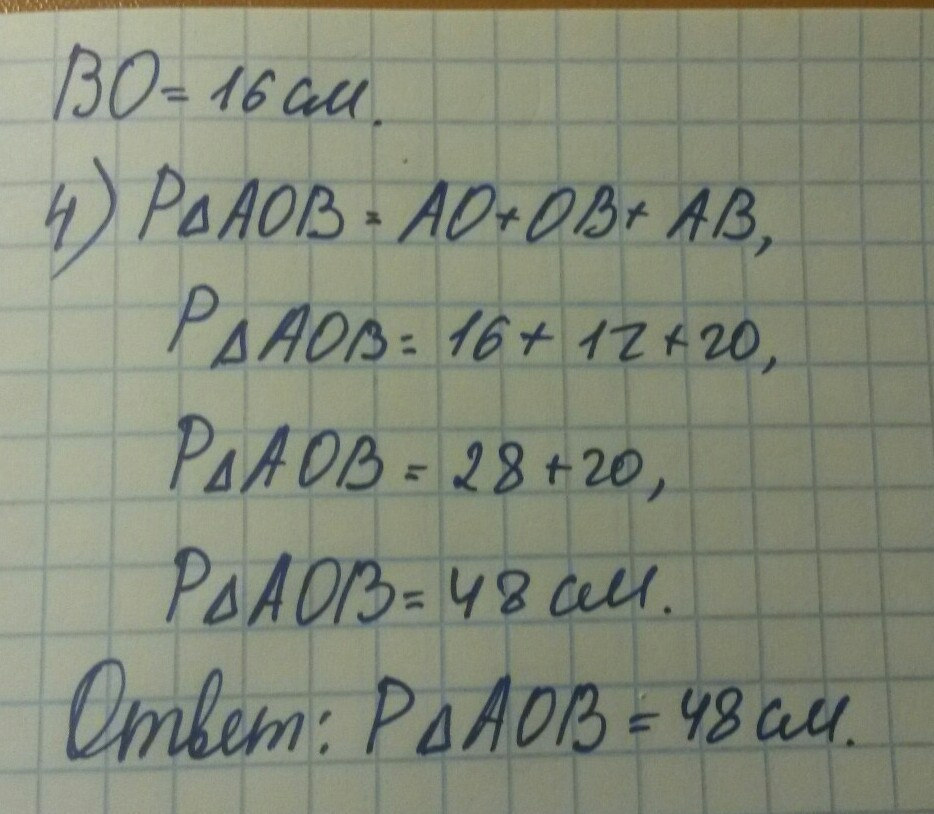 ВО = 16 см.
4) PΔAOB = AO + OB + AB,
PΔAOB = 16 + 12 + 20,
PΔAOB = 28 + 20,
PΔAOB = 48 см.
Ответ: PΔAOB = 48 см.